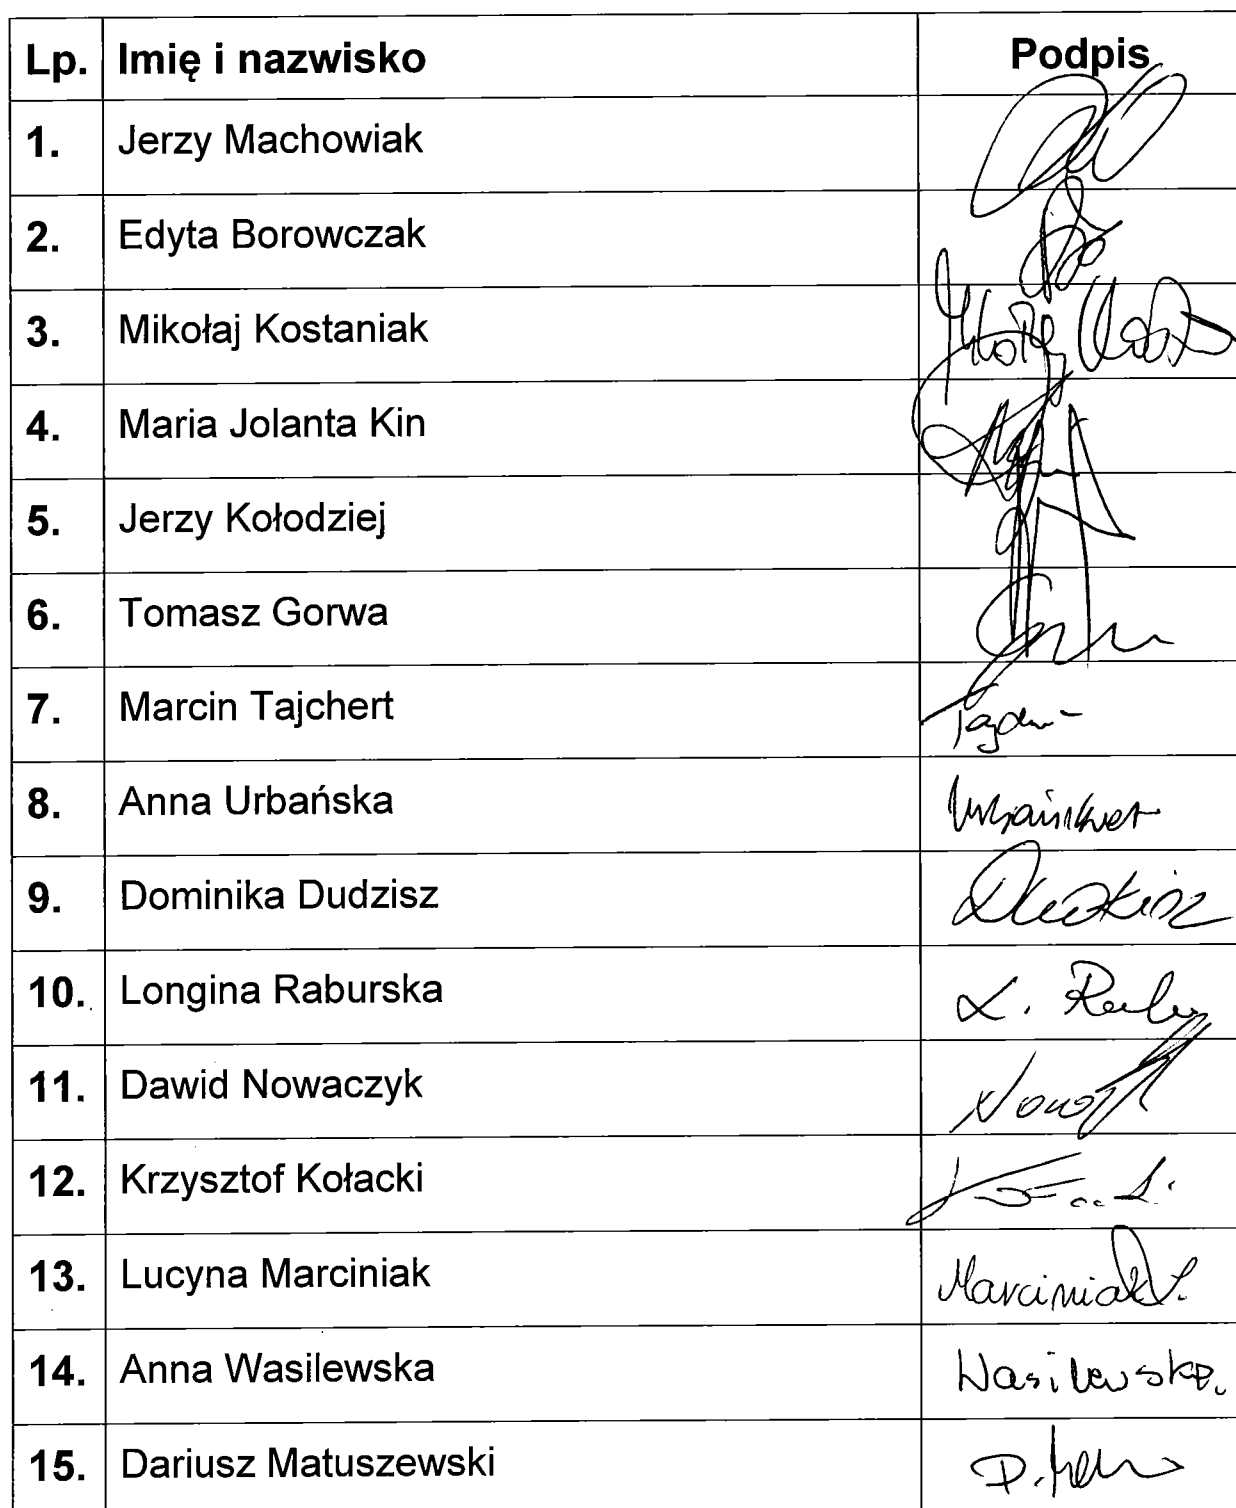 Lp. Imię i nazwisko Podpis
1. Jerzy Machowiak
2. Edyta Borowczak
3. Mikołaj Kostaniak
4. Maria Jolanta Kin
5. Jerzy Kołodziej
6. Tomasz Gorwa
7. Marcin Tajchert
8. Anna Urbańska Urbańska
9. Dominika Dudzisz Dudzisz
10. Longina Raburska L.
11. Dawid Nowaczyk
12. Krzysztof Kołacki
13. Lucyna Marciniak Marciniak L.
14. Anna Wasilewska Wasilewska
15. Dariusz Matuszewski D.